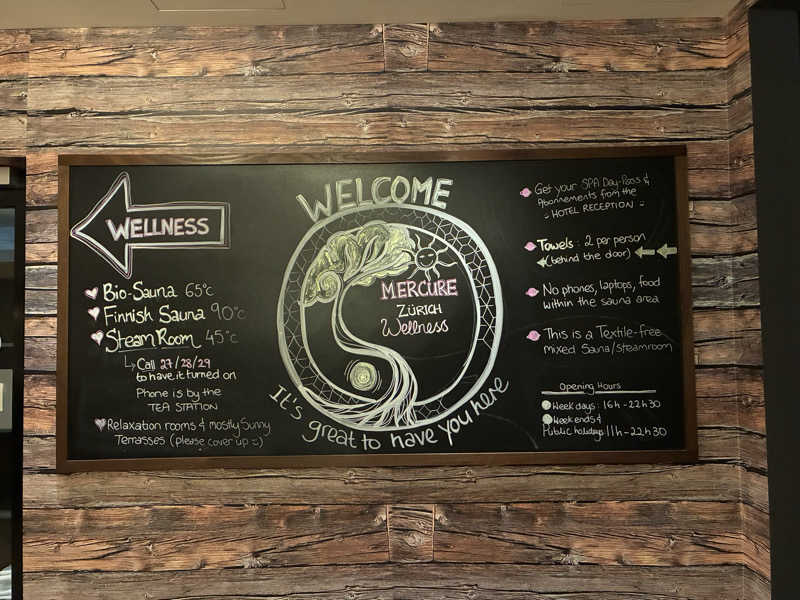 WELLNESS
Bio-Sauna 65°c
Finnish Sauna 90°c
Steam Room 45°c
Call 27/28/29
to have it turned on
Phone is by the
TEA STATION
Relaxation rooms & mostly Sunny
Terrasses (please cover up =)
WELCOME
MERCURE
ZÜRICH
Wellness
It's great to have you here
Get your SPA Day-Pass &
Abonnements from the
HOTEL RECEPTION
Towels: 2 per person
(behind the door)
No phones, laptops, food
within the sauna area
This is a Textile-free
mixed Sauna/steamroom
Opening Hours
Weekdays: 16h-22h30
Weekends &
Public holidays 11h-22h30